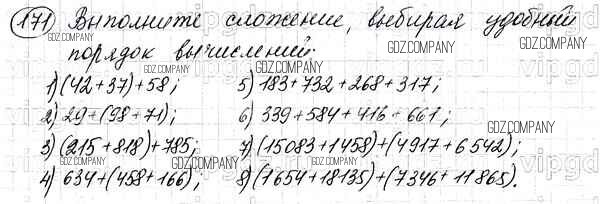 171) Выполните сложение, выбирая удобный
порядок вычислений:
1) (42+37)+58;
2) 29+(98+71);
3) (215+818)+785;
4) 634+(458+166);
5) 183+732+268+317;
6) 339+584+416+661;
7) (15083+1458)+(4917+6542);
8) (1654+18135)+(7346+11865).
GDZ.COMPANY
GDZ.COMPANY
GDZ.COMPANY
GDZ.COMPANY
GDZ.COMPANY
GDZ.COMPANY
GDZ.COMPANY
GDZ.COMPANY
GDZ.COMPANY
vipgd
vipgd
vipgd
vipgd